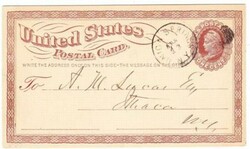 United States
POSTAL CARD.
WRITE THE ADDRESS ON THIS SIDE - THE MESSAGE ON THE OTHER
To A. M.
Ithaca
N.Y.